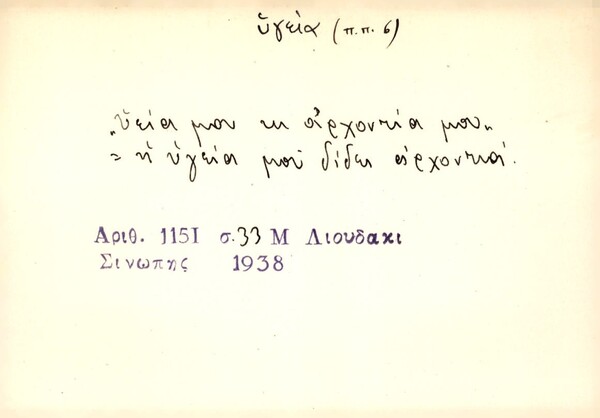 ὑγεία (π.π. 6)
„ὑεία μου κι ἀρχοντία μου„
= ἡ ὑγεία μοῦ δίδει ἀρχοντιά.
Αριθ. 1151 σ. 33 Μ Λιουδακι
Σινωπης 1938